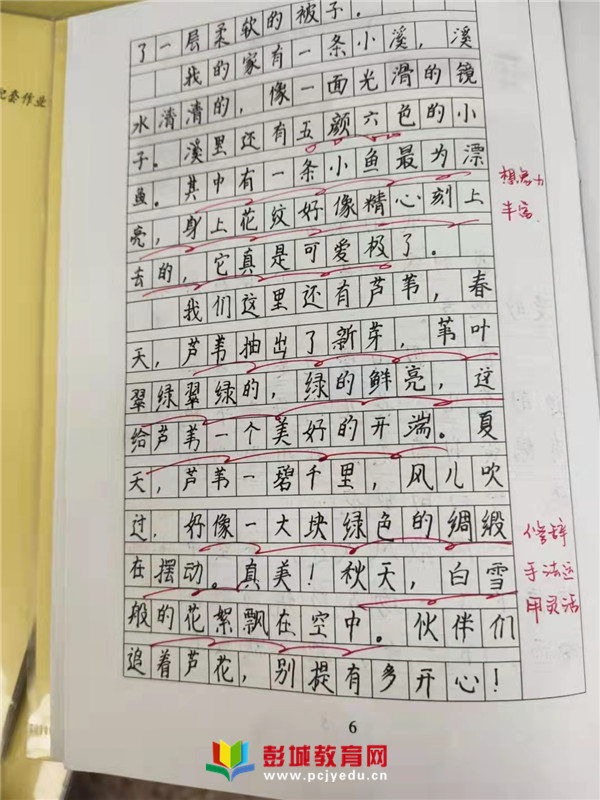 配套作业
了一层柔软的被子。
我的家有一条小溪，溪
水清清的，像一面光滑的镜
子。溪里还有五颜六色的小
鱼。其中有一条小鱼最为漂
亮，身上花纹好像精心刻上
去的，它真是可爱极了。
我们这里还有芦苇，春
天，芦苇抽出了新芽，苇叶
翠绿翠绿的，绿的鲜亮，这
给芦苇一个美好的开端。夏
天，芦苇一碧千里，风儿吹
过，好像一大块绿色的绸缎
在摆动。真美！秋天，白雪
般的花絮飘在空中。伙伴们
追着芦花，别提有多开心！
想象力
丰富.
修辞
手法运
用灵活
6
彭城教育网
www.pcjyedu.cn